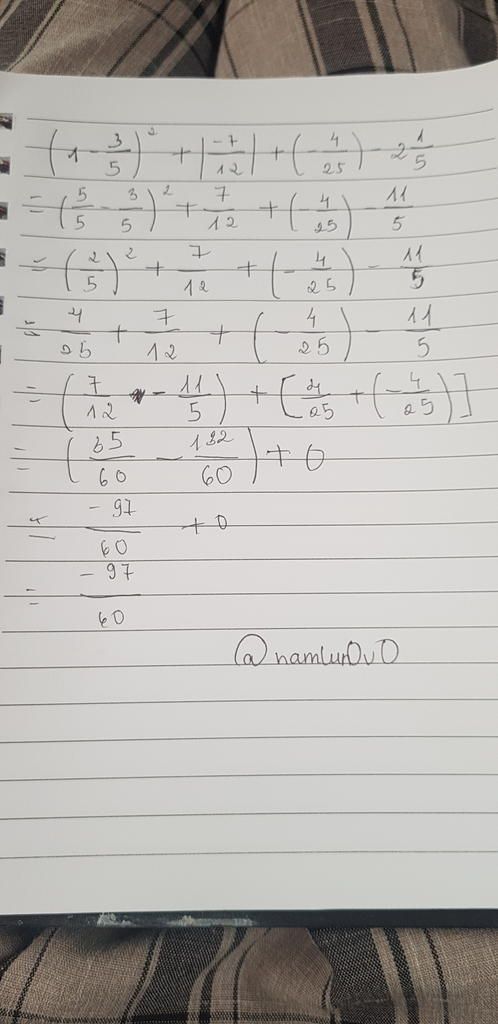 (1 - 3/5)² + |-7/12| + (-4/25) - 2 1/5
= (5/5 - 3/5)² + 7/12 + (-4/25) - 11/5
= (2/5)² + 7/12 + (-4/25) - 11/5
= 4/25 + 7/12 + (-4/25) - 11/5
= (7/12 - 11/5) + [4/25 + (-4/25)]
= (35/60 - 132/60) + 0
= -97/60 + 0
= -97/60
@namlur0v0